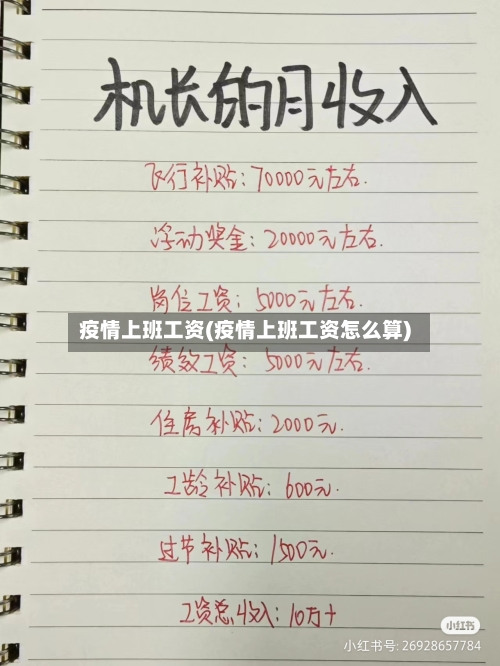 机长的月收入
飞行补贴：70000元左右.
浮动奖金：20000元左右.
岗位工资：5000元左右.
疫情上班工资(疫情上班工资怎么算)
绩效工资：5000元左右.
住房补贴：2000元.
工龄补贴：600元.
过节补贴：1500元.
工资总收入：10万+
小红书
小红书号: 26928657784